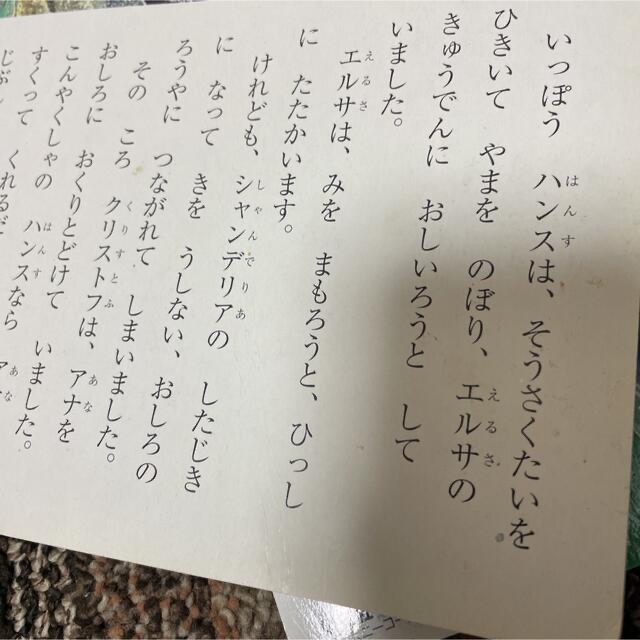 いっぽう ハンスは、そうさくたいを
ひきいて やまを のぼり、エルサの
きゅうでんに おしいろうと して
いました。
エルサは、みを まもろうと、ひっし
に たたかいます。
けれども、シャンデリアの したじき
に なって きを うしない、おしろの
ろうやに つながれて しまいました。
その ころ クリストフは、アナを
おしろに おくりとどけて いました。
こんやくしゃの ハンスなら
すくって くれるだ